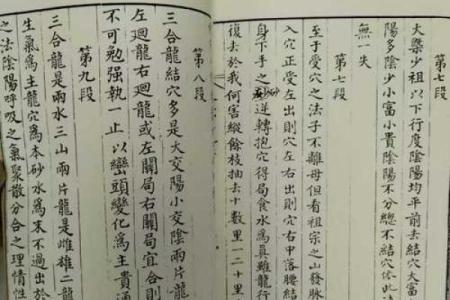 大槩少祖以下行度陰陽均平前去結穴大富
陽多陰少小富小貴陰陽不分總不結穴依此
無一失
第七段
至于受穴之法子不離母但看祖宗之山發脉
入穴正受左出則穴左右出則穴右中落腰結
身下手之逆轉抱穴得局食水爲真雖龍行
復去於我何害縱餘枝抽去十數里二十里
第八段
三合龍結穴多是大交陽小交陰兩片龍
左迴龍右迴龍或左關局右關局宜合則
不可勉强執一止以巒頭變化爲主貴通
第九段
三合龍是兩水三山兩片龍是雌雄二龍
生氣爲主龍穴爲本砂水爲末不過出於
之法陰陽呼吸之氣聚散分合之理情性